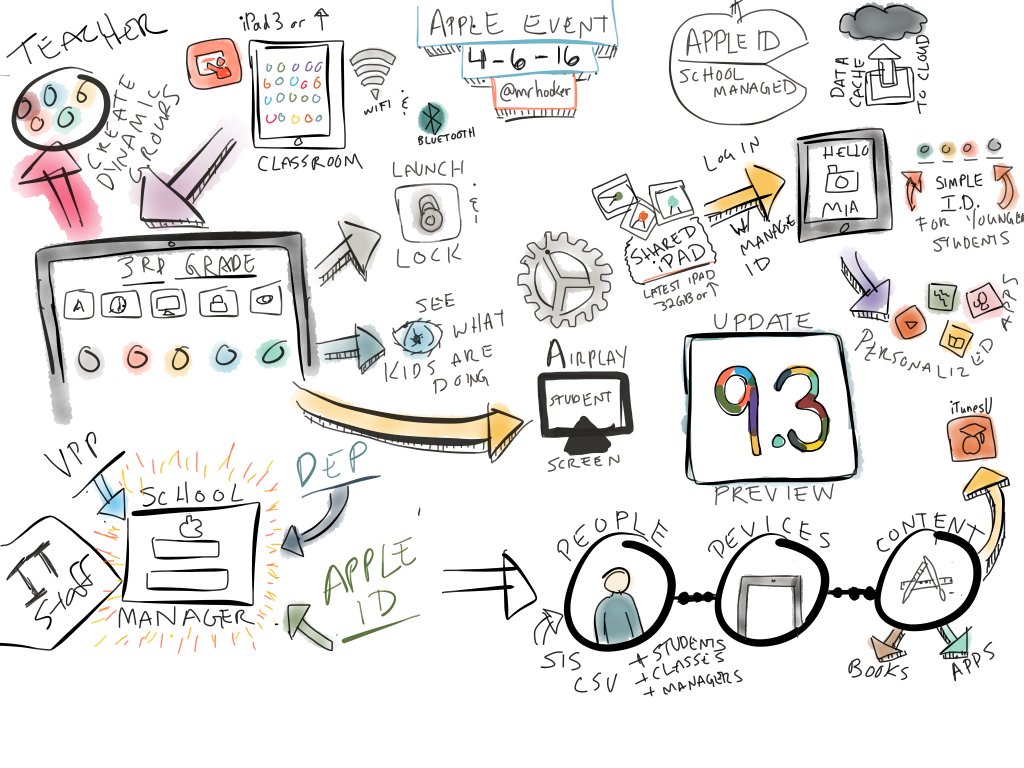 TEACHER
iPad3 or ↑
APPLE EVENT
4-6-16
@mrhooker
APPLE ID
SCHOOL
MANAGED
DATA
CACHE
TO CLOUD
CREATE
DYNAMIC
GROUPS
WIFI &
BLUETOOTH
CLASSROOM
LAUNCH
&
LOCK
3RD GRADE
A
SEE
WHAT
KIDS ARE
DOING
SHARED
iPAD
LATEST IPAD
32GIB or ↑
LOG IN
W/
MANAGE
ID
HELLO
MIA
SIMPLE
I.D.
FOR YOUNGER
STUDENTS
PERSONALIZED
APPS
AIRPLAY
STUDENT
SCREEN
UPDATE
9.3
PREVIEW
iTunesU
VPP
DEP
SCHOOL
MANAGER
IT
Staff
APPLE
ID
PEOPLE
DEVICES
CONTENT
SIS
CSV
+ STUDENTS
+ CLASSES
+ MANAGERS
BOOKS
APPS